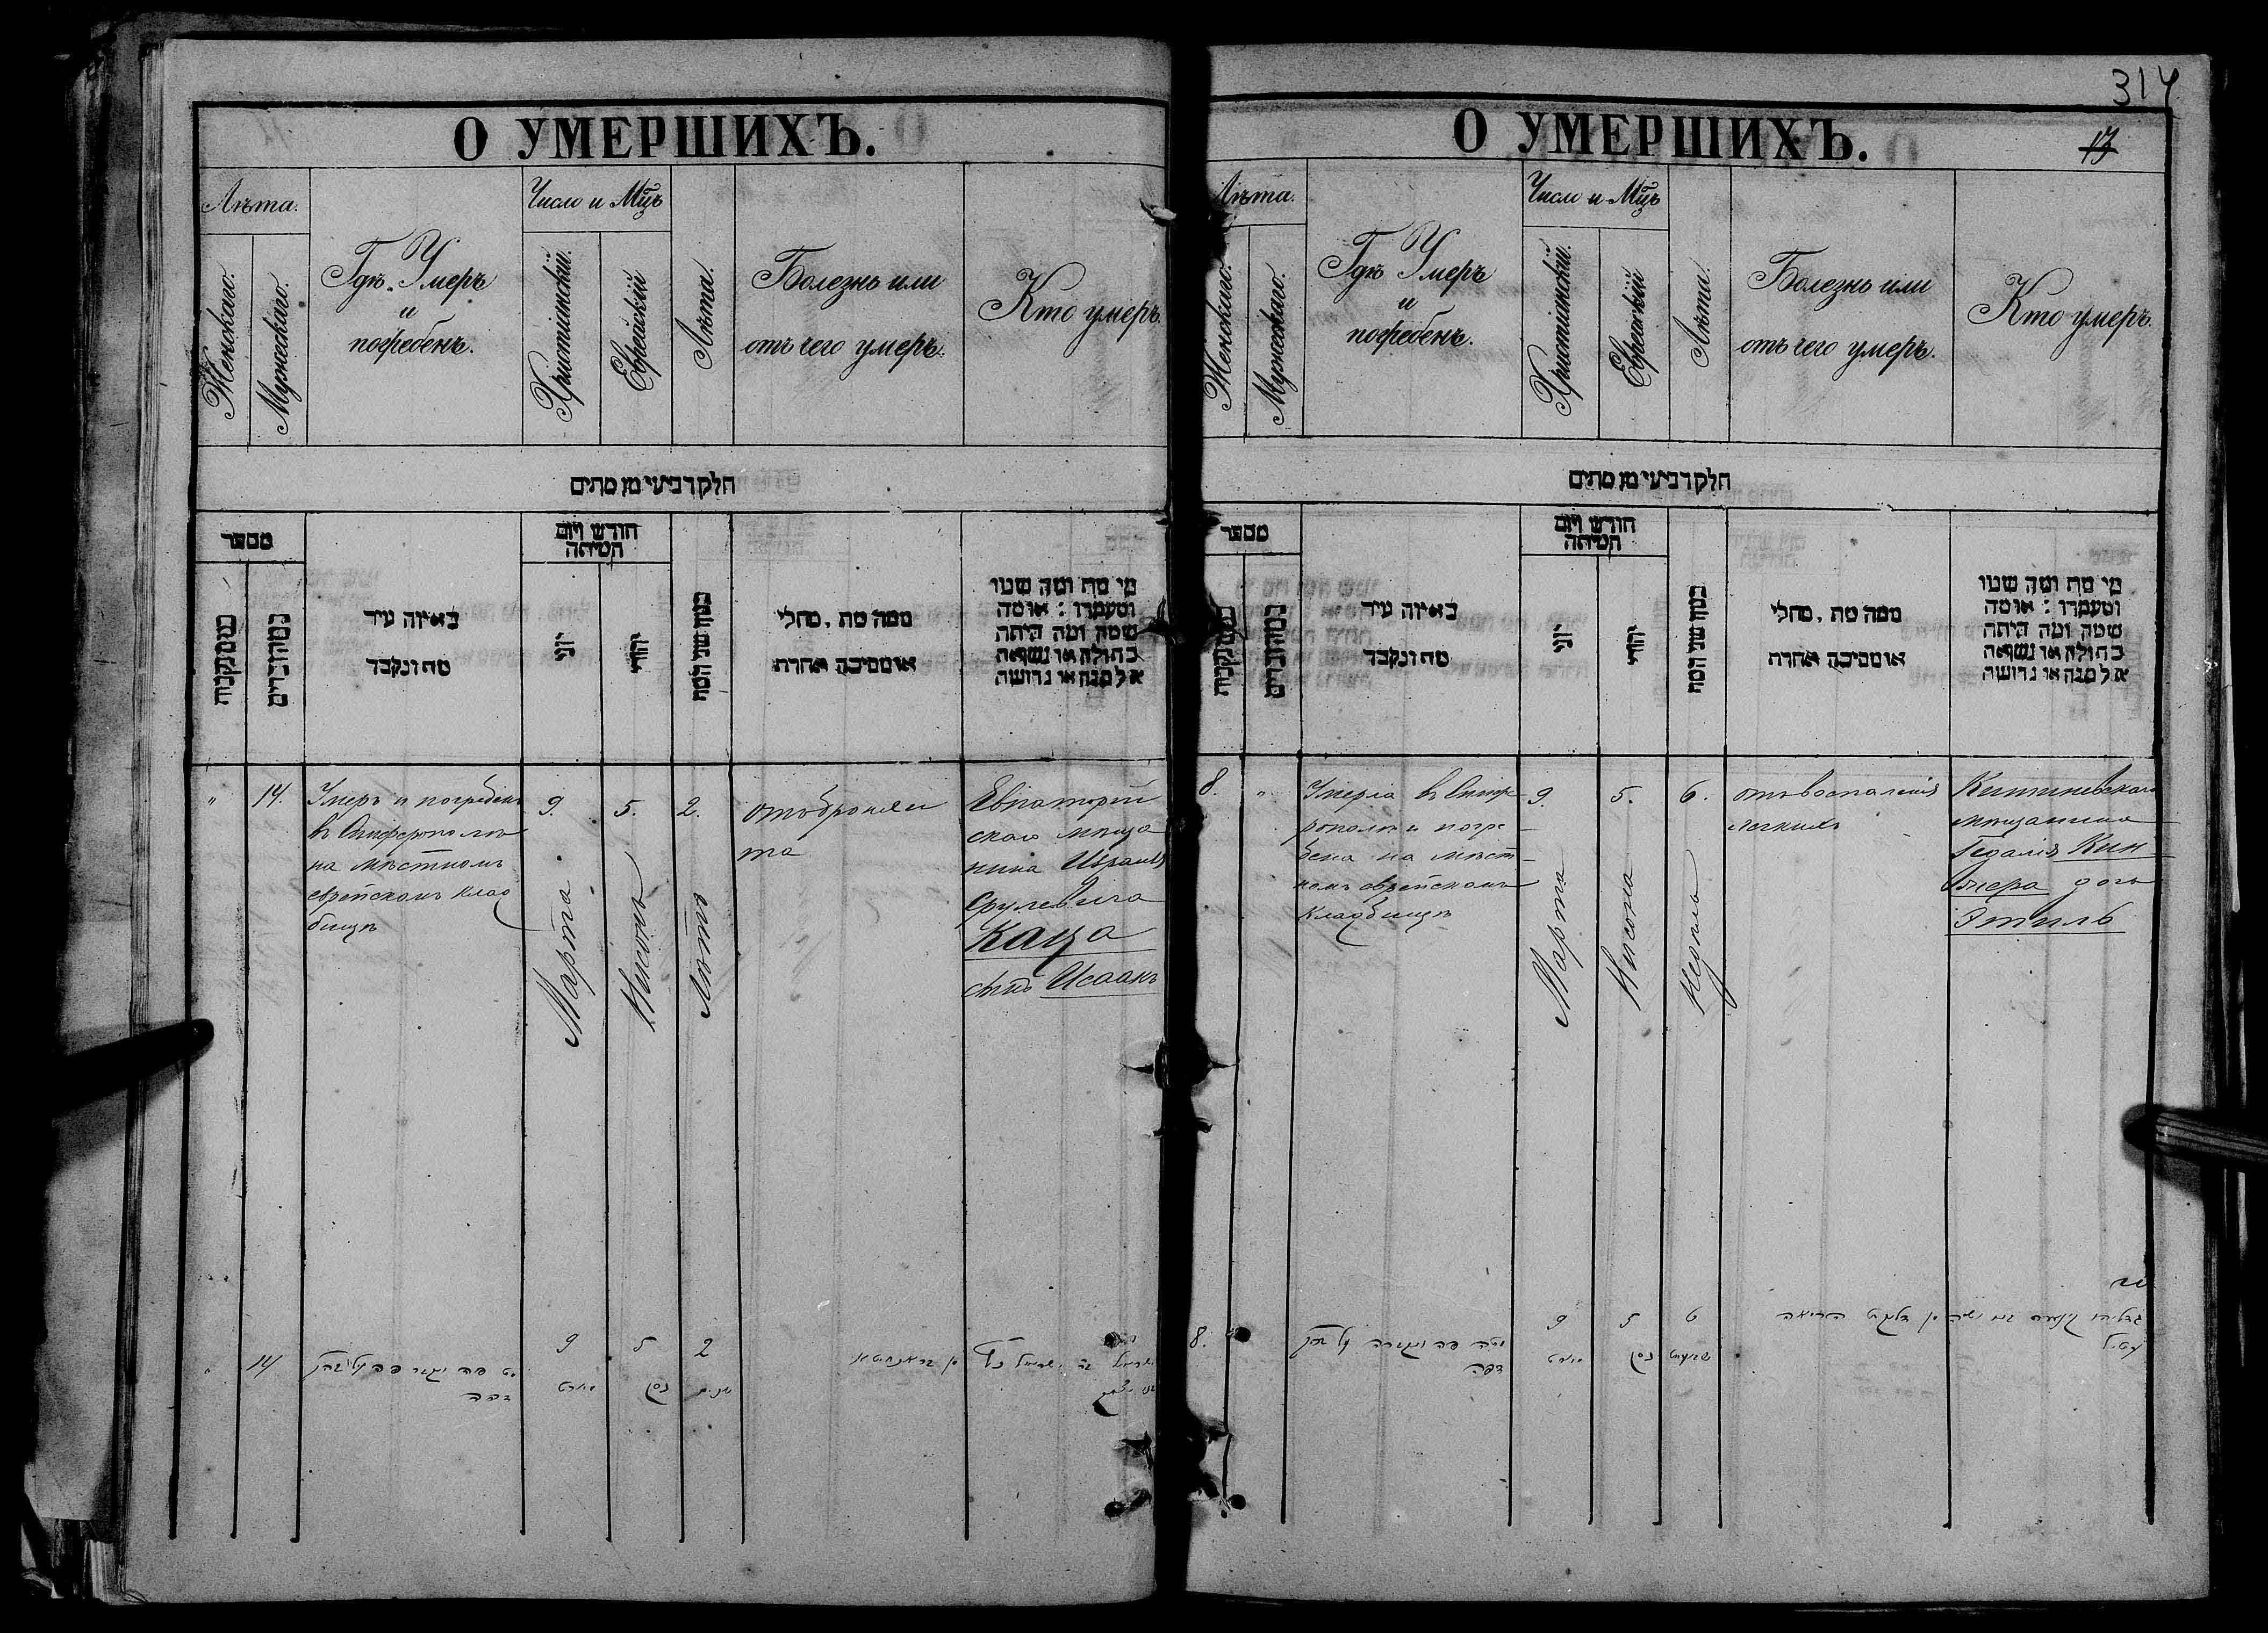 314
О УМЕРШИХЪ.
Лѣта.
Женскаго.
Мужескаго.
Гдѣ Умеръ
и
погребенъ.
Число и Мцъ
Христіанскій.
Еврейскій
Лѣта.
Болезнь или
отъ чего умеръ.
Кто умеръ.
חלק רביעי מן מתים
מספר
במס נקבות
במס הזכרים
באיזה עיר
מת ונקבר
חודש ויום
המיתה
יוני
יהודי
כמה שני המת
ממה מת, מחלי
או מסיבה אחרת
מי מת ומה שמו
ומעמדו : או מה
שמה ומה היתה
בתולה או נשואה
אלמנה או גרושה
"
14.
Умеръ и погребенъ
въ Симферополѣ
на мѣстномъ
еврейскомъ клад
бищѣ
9.
Марта
5.
Нисона
2.
Лѣтъ
отъ бронхи
та
Евпаторій
скаго мѣща
нина Израиля
Срулевича
Каца
сынъ Исаакъ
"
14
9
5
2
מת פה ונקבר פה
מארט
ניסן
שנים
О УМЕРШИХЪ.
13
Лѣта.
Женскаго.
Мужескаго.
Гдѣ Умеръ
и
погребенъ.
Число и Мцъ
Христіанскій.
Еврейскій
Лѣта.
Болезнь или
отъ чего умеръ.
Кто умеръ.
חלק רביעי מן מתים
מספר
במס נקבות
במס הזכרים
באיזה עיר
מת ונקבר
חודש ויום
המיתה
יוני
יהודי
כמה שני המת
ממה מת, מחלי
או מסיבה אחרת
מי מת ומה שמו
ומעמדו : או מה
שמה ומה היתה
בתולה או נשואה
אלמנה או גרושה
8.
"
Умерла въ Симфе-
рополѣ и погре-
бена на мѣст-
номъ еврейскомъ
кладбищѣ
9.
Марта
5.
Нисона
6.
Недѣль
отъ воспаленія
легкихъ
Кишиневскаго
мѣщанина
Гедалія Кин
жера дочь
Этиль
8.
9
5
6
מתה פה ונקברה
מארט
ניסן
שבועות
הריאה